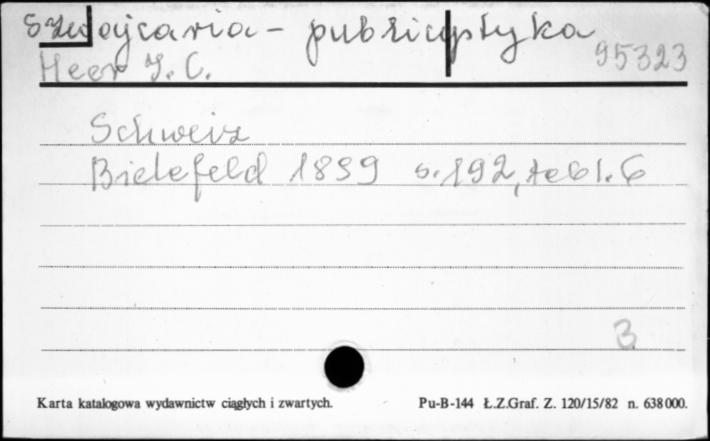 Szwajcaria - publicystyka
95323
Heer J. C.
Schweiz
Bielefeld 1899 s. 192, tabl. 6
B
Karta katalogowa wydawnictw ciągłych i zwartych.
Pu-B-144 Ł.Z.Graf. Z. 120/15/82 n. 638000.